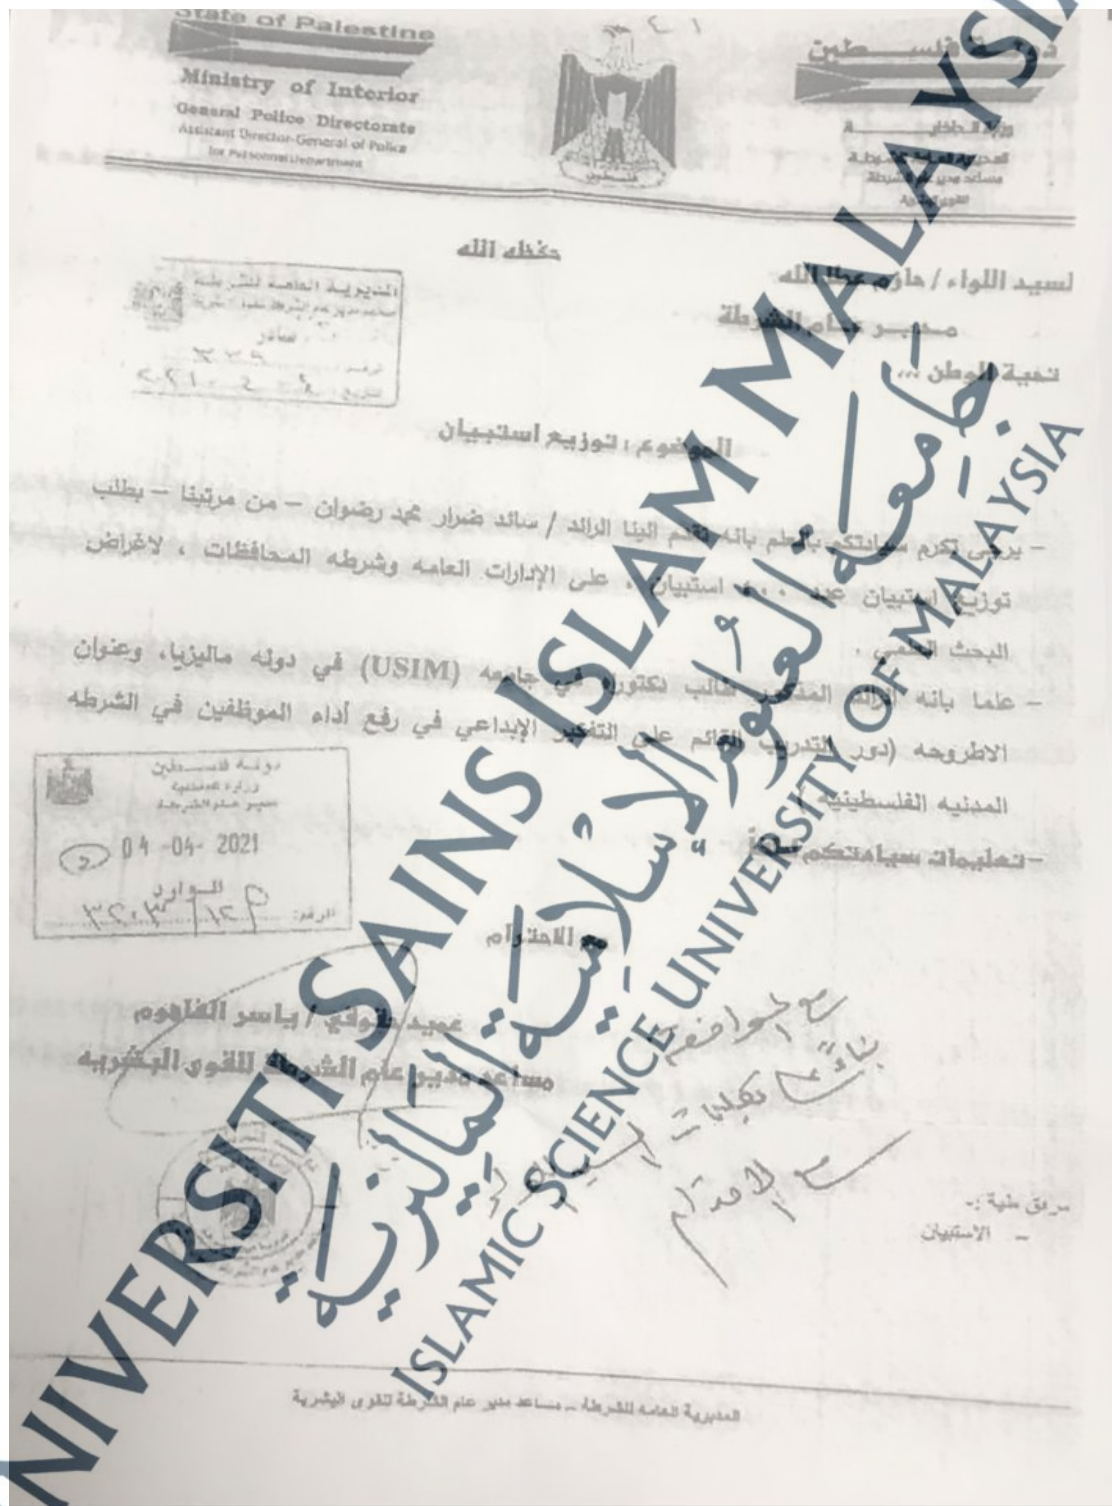 State of Palestine
Ministry of Interior
General Police Directorate
Assistant Director-General of Police
for Personnel Department
دولة فلســـــطين
وزارة الـداخليـــــــة
المديرية العامة للشرطة
مساعد مدير عام الشرطة
فلسطين
حفظه الله
لسيد اللواء / حازم عطا الله
مـديـــر عـــام الشرطة
تحية الوطن ...
المديرية العامة للشرطة
صادر
الموضوع : توزيع استبيان
– يرجى تكرم سيادتكم بالعلم بانه تقدم الينا الرائد / سائد ضرار محمد رضوان – من مرتبنا – بطلب
توزيع استبيان عدد استبيان ، على الإدارات العامه وشرطه المحافظات ، لاغراض
البحث العلمي .
– علما بانه الرائد المذكور طالب دكتوراه في جامعه (USIM) في دوله ماليزيا، وعنوان
الاطروحه (دور التدريب القائم على التفكير الإبداعي في رفع أداء الموظفين في الشرطه
المدنيه الفلسطينيه)
–تعليمات سيادتكم
دولة فلســـطين
وزارة الداخلية
مدير عام الشرطة
04 -04- 2021
الــوارد
الرقم:
مع الاحترام
عميد حقوقي / ياسر الفاهوم
مساعد مدير عام الشرطة للقوى البشريه
مع الاحترام
مرفق طية :-
– الاستبيان
المديرية العامه للشرطة – مساعد مدير عام الشرطة للقوى البشرية
UNIVERSITI SAINS ISLAM MALAYSIA
جامعة العلوم الإسلامية الماليزية
ISLAMIC SCIENCE UNIVERSITY OF MALAYSIA